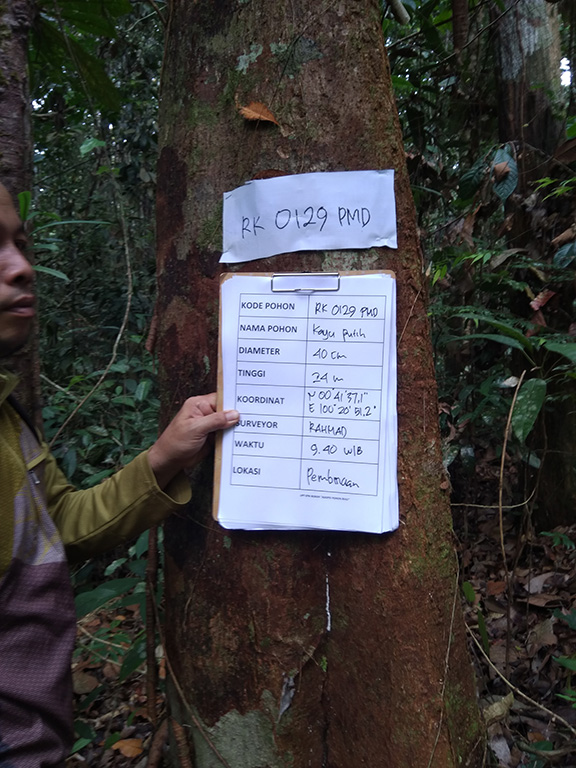 RK 0129 PMD
KODE POHON RK 0129 PMD
NAMA POHON Kayu putih
DIAMETER 40 cm
TINGGI 24 m
KOORDINAT N 00°41'37,1"
E 100°20'51,2"
SURVEYOR RAHMAD
WAKTU 9.40 WIB
LOKASI